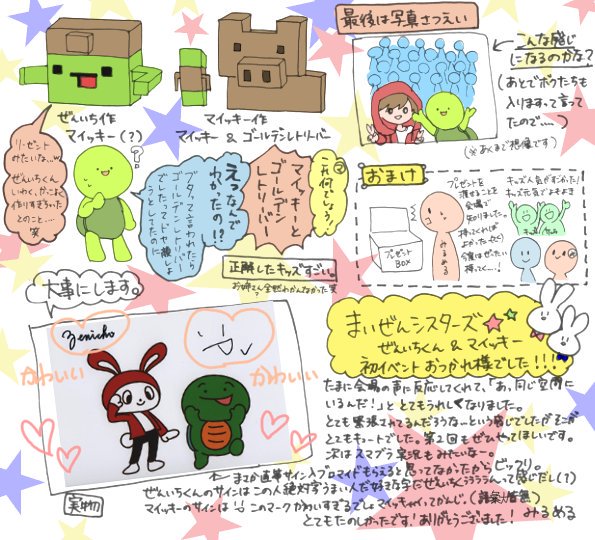 最後は写真さつえい
こんな感じ
になるのかな?
(あとでボクたちも
入りますって言って
たので……)
(※あくまで想像です)
ぜんいち作
マイッキー(?)
マイッキー作
マイッキー & ゴールデンレトリバー
リーゼント
みたいな…w
ぜんいちくん
いわく、かっこよく
作りすぎちゃった
とのこと…
笑
?
これ何でしょう!
マイッキーと
ゴールデン
レトリバー
えっなんで
わかったの!?
ブタって言われたら
ゴールデンレトリバー
でしたってドヤ顔しよ
うとしてたのに
正解したキッズすごい。
お姉さん全然わかんなかった笑
おまけ
プレゼントを
渡せることを
会場で
知りました。
持ってくれば
よかった…(泣)
今度はぜったい
持ってく…!
プレゼント
BOX
みるめる
キッズ人気がすごかった!
キッズ元気でよきよき
大事にします。
Zenicho
かわいい
かわいい
実物
まいぜんシスターズ
ぜんいちくん & マイッキー
初イベント おつかれ様でした!!!
たまに会場の声に反応してくれて、「あ、同じ空間に
いるんだ!」ととてもうれしくなりました。
とても緊張されてるんだろうな…という感じでしたがそこが
とてもキュートでした。第2回もぜひやってほしいです。
次はスマブラ実況もみたいな…
まさか直筆サイン入ブロマイドもらえると思ってなかったからビックリ。
ぜんいちくんのサインはこの人絶対字うまい人だ好きな字だぜんいちくうううんって感じだし(?)
マイッキーのサインは このマークかわいすぎるでしょマイッキャイってかんじ。(語彙力皆無)
とてもたのしかったです!ありがとうございました! みるめる